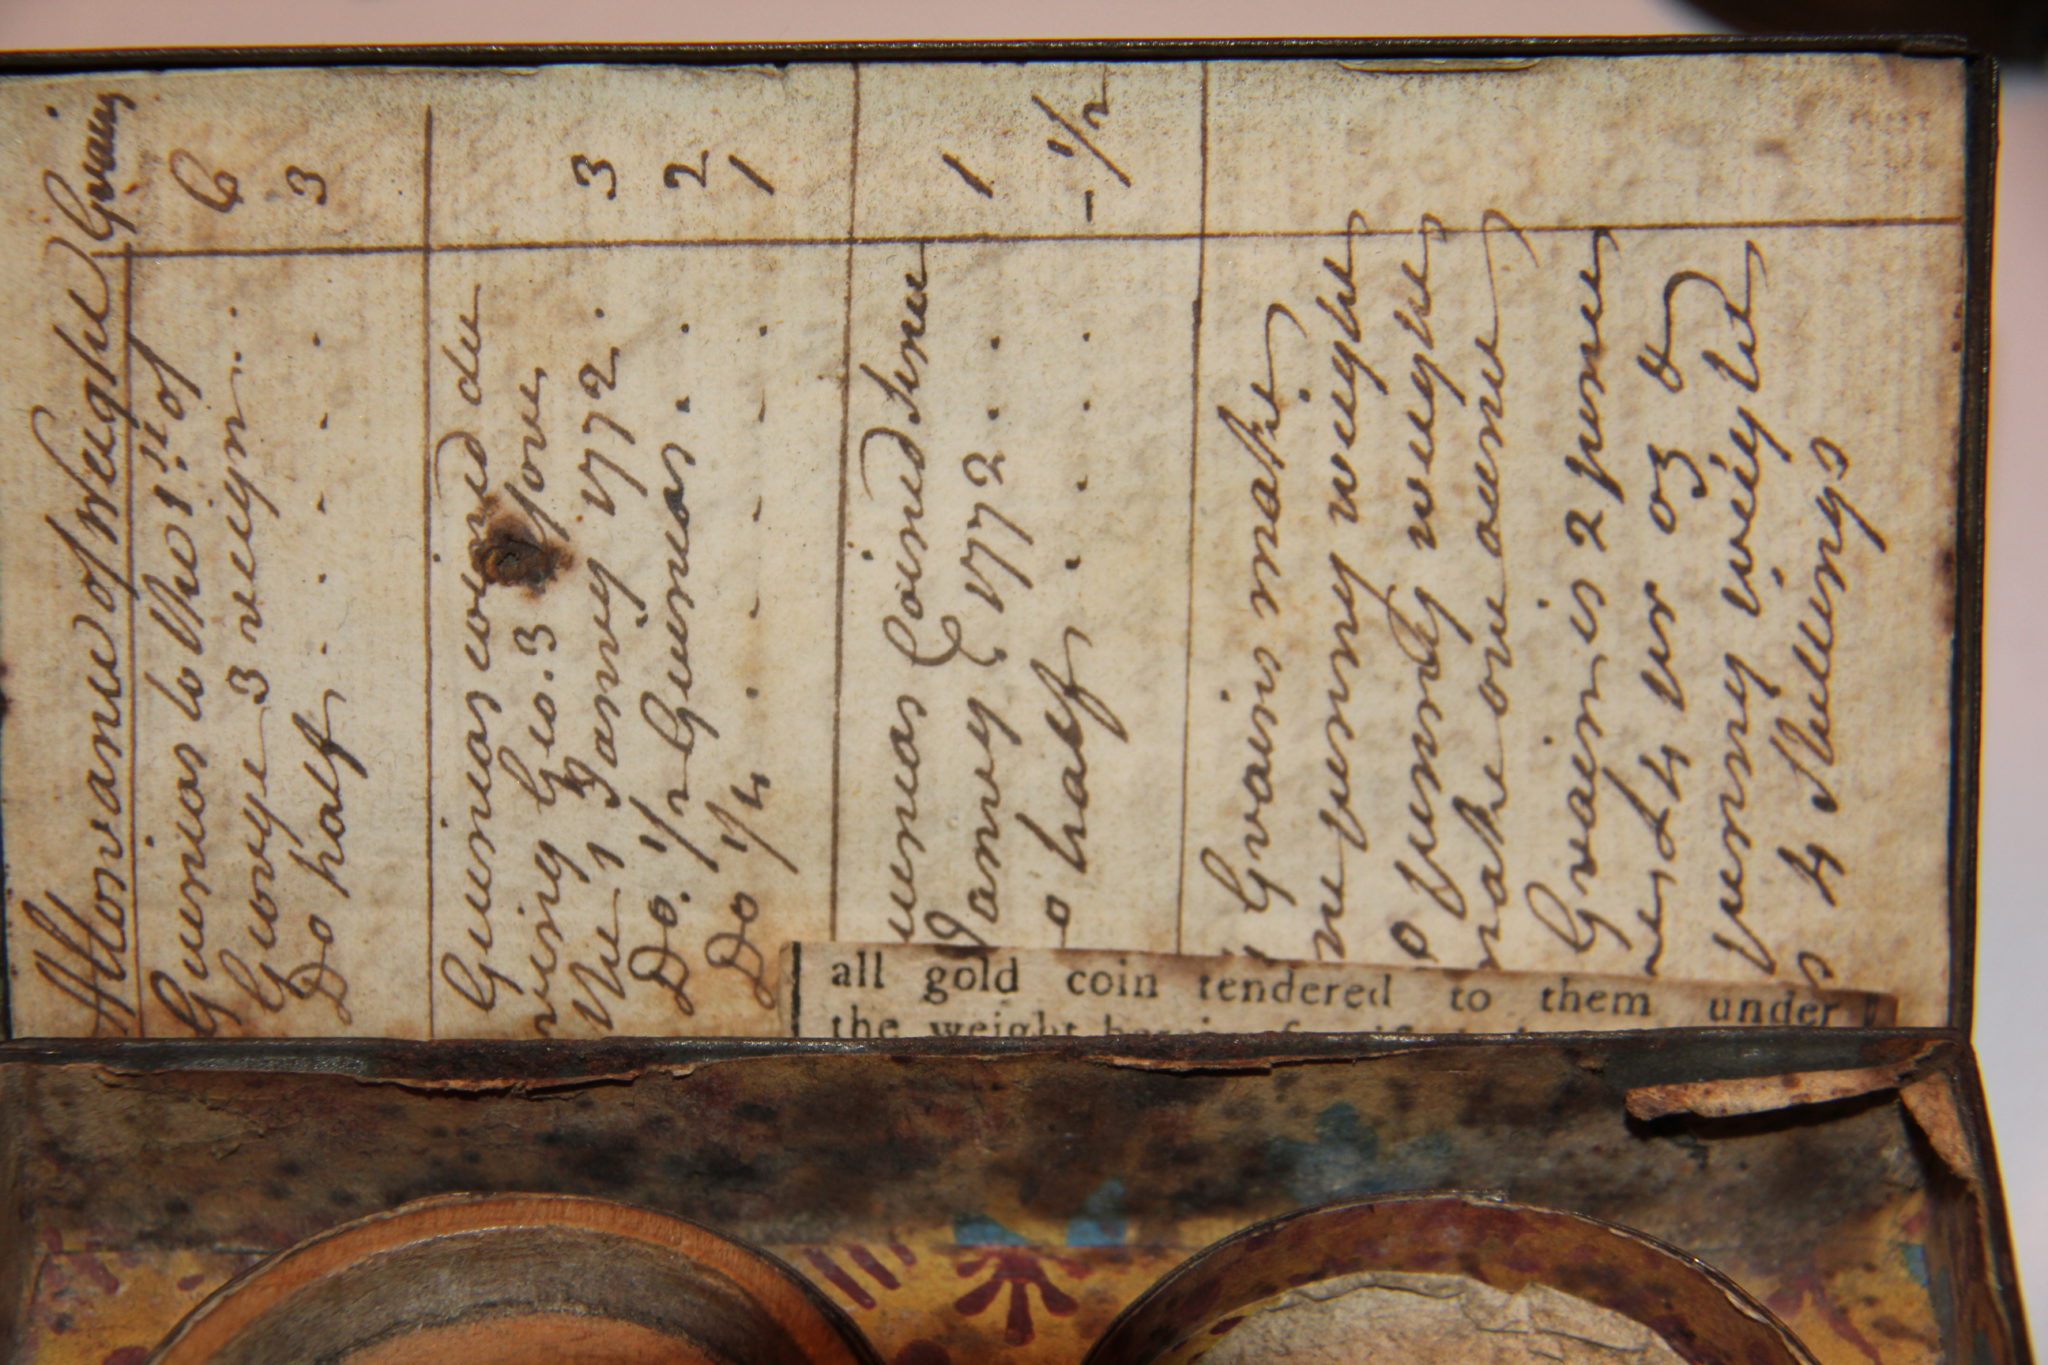 Allowance of Weight Grains
Guineas to the 1st of
George 3 reign . . 6
Do half . . . . . 3
Guineas coined du
ring Geo. 3 fore
the 1 Janry 1772 . 3
Do. 1/2 Guineas . . 2
Do 1/4 . . . . . 1
uineas Coined Since
Janry 1772 . . 1
o half . . . . - 1/2
Grains make
ne penny weight
o penny weight
make one ounce
Grain is 2 pence
4 pr oz &
penny weight
s 4 Shillings
all gold coin tendered to them under
the weight